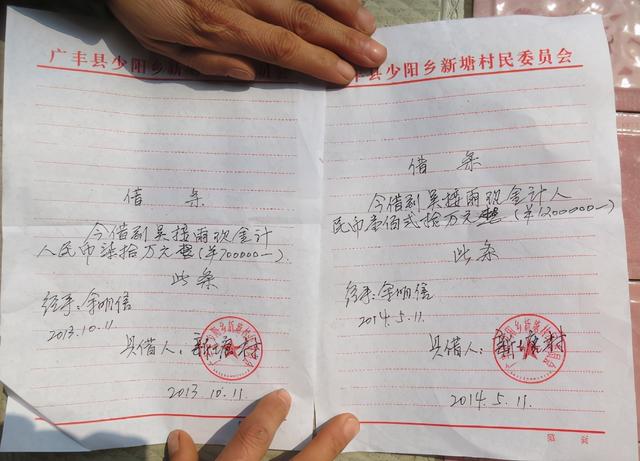 广丰县少阳乡新塘村
借 条
今借到吴接雨现金计
人民币柒拾万元整(￥700000—)
此条
经手:余明信
2013.10.11
具借人:新塘村
2013.10.11
广丰县少阳乡新塘村民委员会
借 条
今借到吴接雨现金计人
民币壹佰贰拾万元整(￥1200000—)
此条
经手:余明信
2014.5.11.
具借人:新塘村
2014.5.11.
第 页